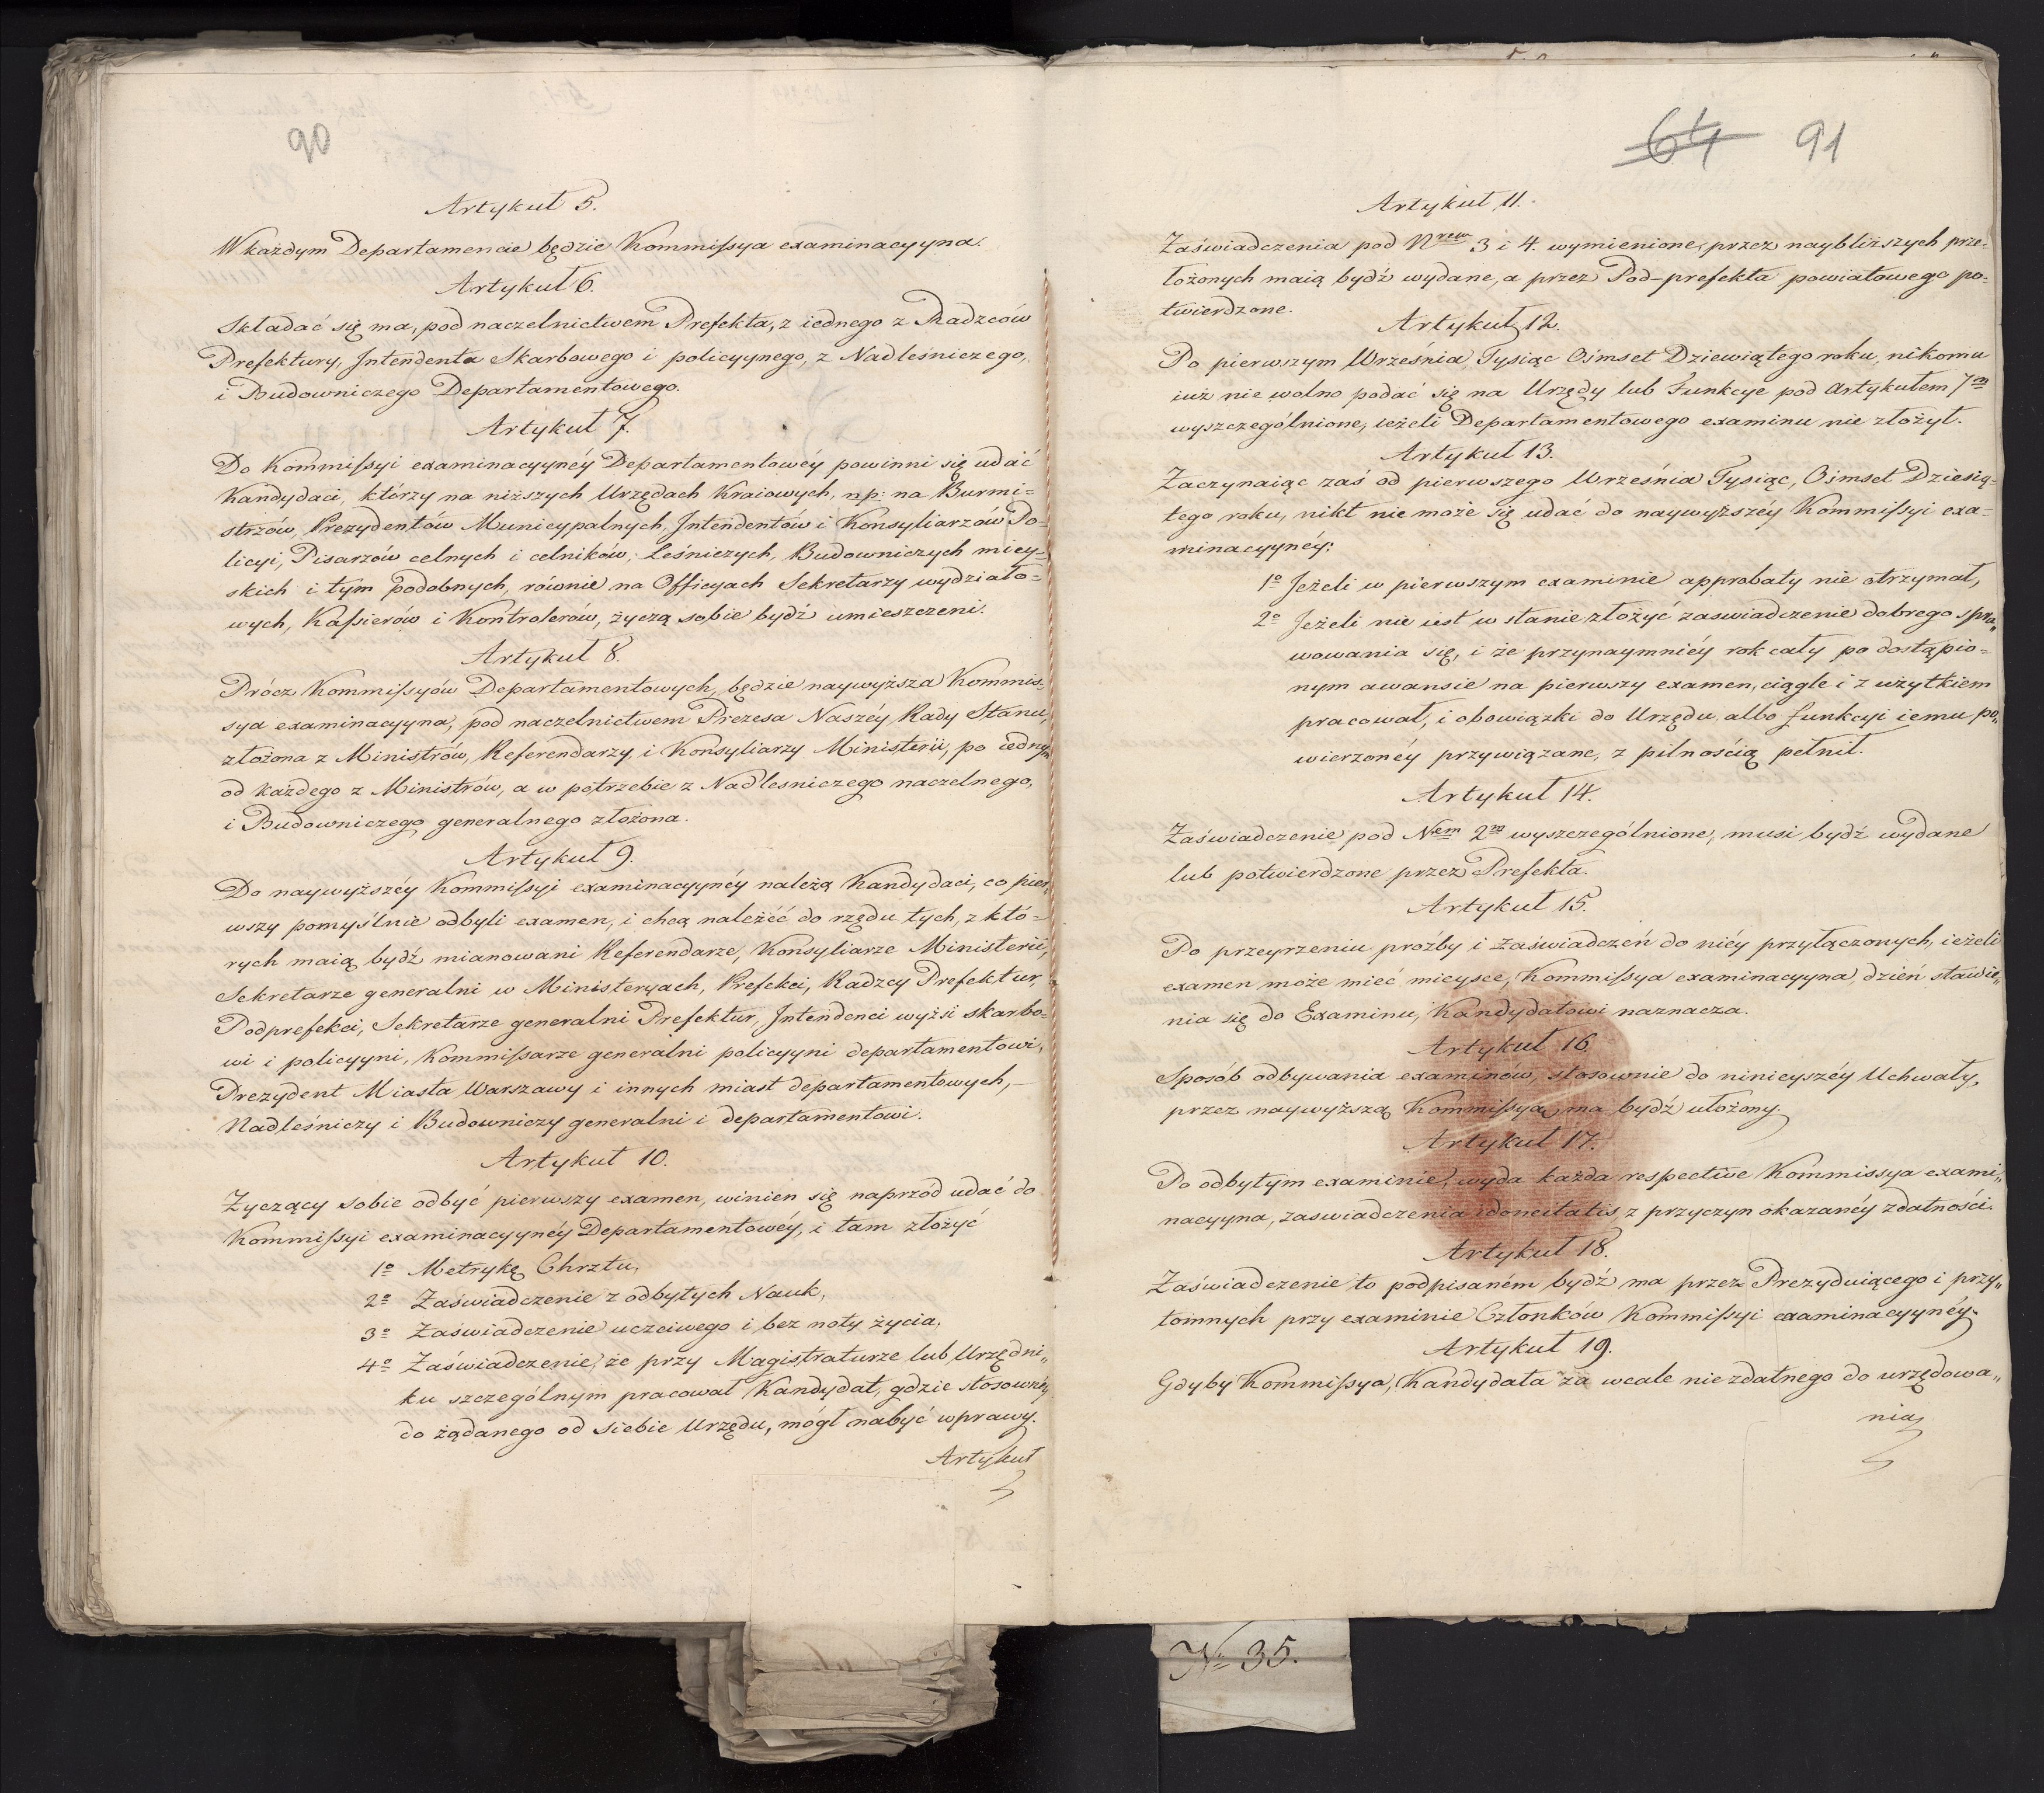 90
Artykuł 5.
W każdym Departamencie będzie Kommissya examinacyyna.
Artykuł 6.
Składać się ma, pod naczelnictwem Prefekta, z iednego z Radzców
Prefektury, Jntendenta Skarbowego i policyynego, z Nadleśniczego,
i Budowniczego Departamentowego.
Artykuł 7.
Do Kommissyi examinacyynéy Departamentowéy powinni się udać
Kandydaci, którzy na niższych Urzędach Kraiowych, np: na Burmi-
strzów, Prezydentów Municypalnych, Jntendentów i Konsyliarzów Po-
licyi, Pisarzów celnych i celników, Leśniczych, Budowniczych miey-
skich i tym podobnych, róównie na Officyach Sekretarzy wydziało-
wych, Kassierów i Kontrolerów, życzą sobie bydź umieszczeni.
Artykuł 8.
Prócz Kommissyów Departamentowych, będzie naywyższa Kommis-
sya examinacyyna, pod naczelnictwem Prezesa Naszéy Rady Stanu,
złożona z Ministrów, Referendarzy, i Konsyliarzy Ministerii, po iednym
od każdego z Ministrów, a w potrzebie z Nadlesniczego naczelnego,
i Budowniczego generalnego złożona.
Artykuł 9.
Do naywyższéy Kommissyi examinacyynéy należą Kandydaci, co pier„
wszy pomyślnie odbyli examen, i chcą należéć do rzędu tych, z któ-
rych maią bydź mianowani Referendarze, Konsyliarze Ministerii,
Sekretarze generalni w Ministeryach, Prefekci, Radzcy Prefektur,
Podprefekci, Sekretarze generalni Prefektur, Jntendenci wyżsi skarbo-
wi i policyyni, Kommissarze generalni policyyni departamentowi,
Prezydent Miasta Warszawy i innych miast departamentowych,
Nadleśniczy i Budowniczy generalni i departamentowi.
Artykuł 10.
Życzący sobie odbyć pierwszy examen, winien się naprzód udać do
Kommissyi examinacyynéy Departamentowéy, i tam złożyć
1º Metrykę Chrztu,
2º Zaświadczenie z odbytych Nauk,
3º Zaświadczenie uczciwego i bez noty życia,
4º Zaświadczenie, że przy Magistraturze lub Urzędni„
ku szczególnym pracował Kandydat, gdzie stosownéy
do żądanego od siebie Urzędu, mógł nabyć wprawy.
Artykuł
64 91
Artykuł 11.
Zaświadczenia pod Nrem 3 i 4. wymienione, przez naybliższych prze-
łożonych maią bydź wydane, a przez Pod-prefekta powiatowego po-
twierdzone.
Artykuł 12.
Po pierwszym Września Tysiąc Ośmset Dziewiątego roku, nikomu
iuż nie wolno podać się na Urzędy lub Funkcye pod Artykułem 7m
wyszczególnione, ieżeli Departamentowego examinu nie złożył.
Artykuł 13.
Zaczynaiąc zaś od pierwszego Września Tysiąc, Ośmset Dziesią-
tego roku, nikt nie może się udać do naywyższéy Kommissyi exa-
minacyynéy:
1º Jeżeli w pierwszym examinie approbaty nie otrzymał,
2º Jeżeli nie iest w stanie złożyć zaswiadczenie dobrego spra„
wowania się, i że przynaymniéy rok cały po dostąpio-
nym awansie na pierwszy examen, ciągle i z użytkiem
pracował, i obowiązki do Urzędu albo funkcyi iemu po„
wierzonéy przywiązane, z pilnością pełnił.
Artykuł 14.
Zaświadczenie pod Nem 2m wyszczególnione, musi bydź wydane
lub potwierdzone przez Prefekta.
Artykuł 15.
Po przeyrzeniu proźby i zaświadczeń do niéy przyłączonych, ieżeli
examen może mieć mieysce, Kommissya examinacyyna, dzień stawie„
nia się do Examinu, Kandydatowi naznacza.
Artykuł 16.
Sposób odbywania examinów, stosownie do ninieyszéy Uchwały,
przez naywyższą Kommissyą ma bydź ułożony.
Artykuł 17.
Po odbytym examinie, wyda każda respective Kommissya exami„
nacyyna, zaswiadczenia idoneitatis, z przyczyn okazanéy zdatności.
Artykuł 18.
Zaświadczenie to podpisaném bydź ma przez Prezyduiącego i przy„
tomnych przy examinie Członków Kommissyi examinacyynéy.
Artykuł 19.
Gdyby Kommissya, Kandydata za wcale niezdatnego do urzędowa„
nia
Nº 35.